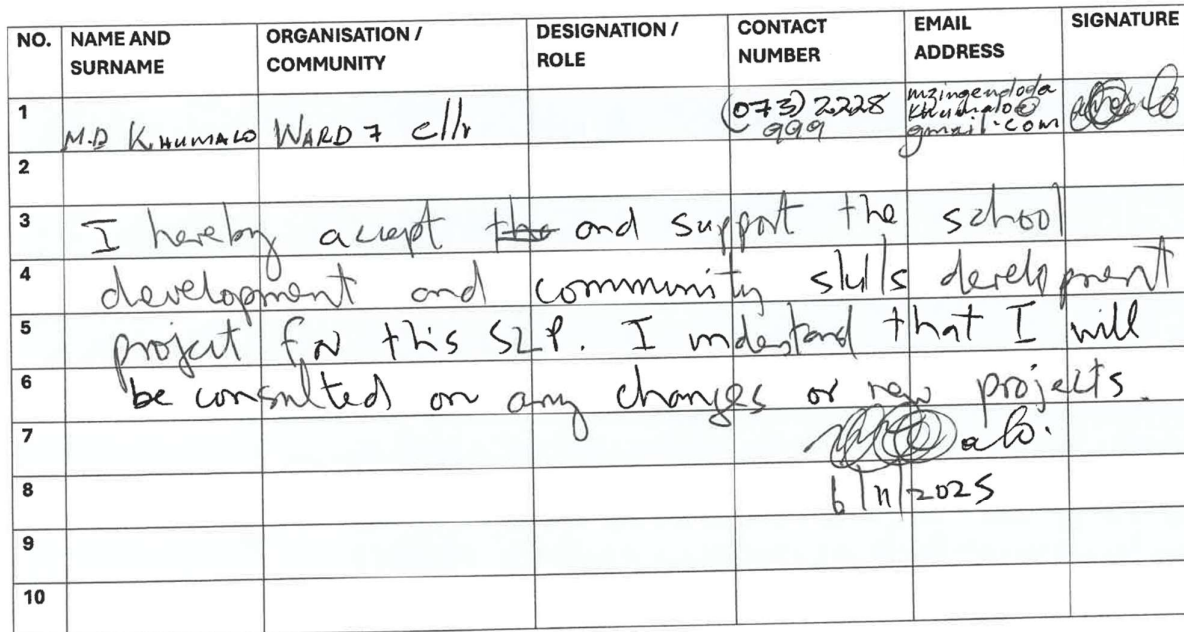 NO. NAME AND SURNAME ORGANISATION / COMMUNITY DESIGNATION / ROLE CONTACT NUMBER EMAIL ADDRESS SIGNATURE
1 M.D KHUMALO WARD 7 cllr (073) 2228 999 mzingendoda khumalo@ gmail.com
2
3 I hereby accept the and support the school
4 development and community skills development
5 project for this SLP. I understand that I will
6 be consulted on any changes or new projects.
7
8 6/11/2025
9
10